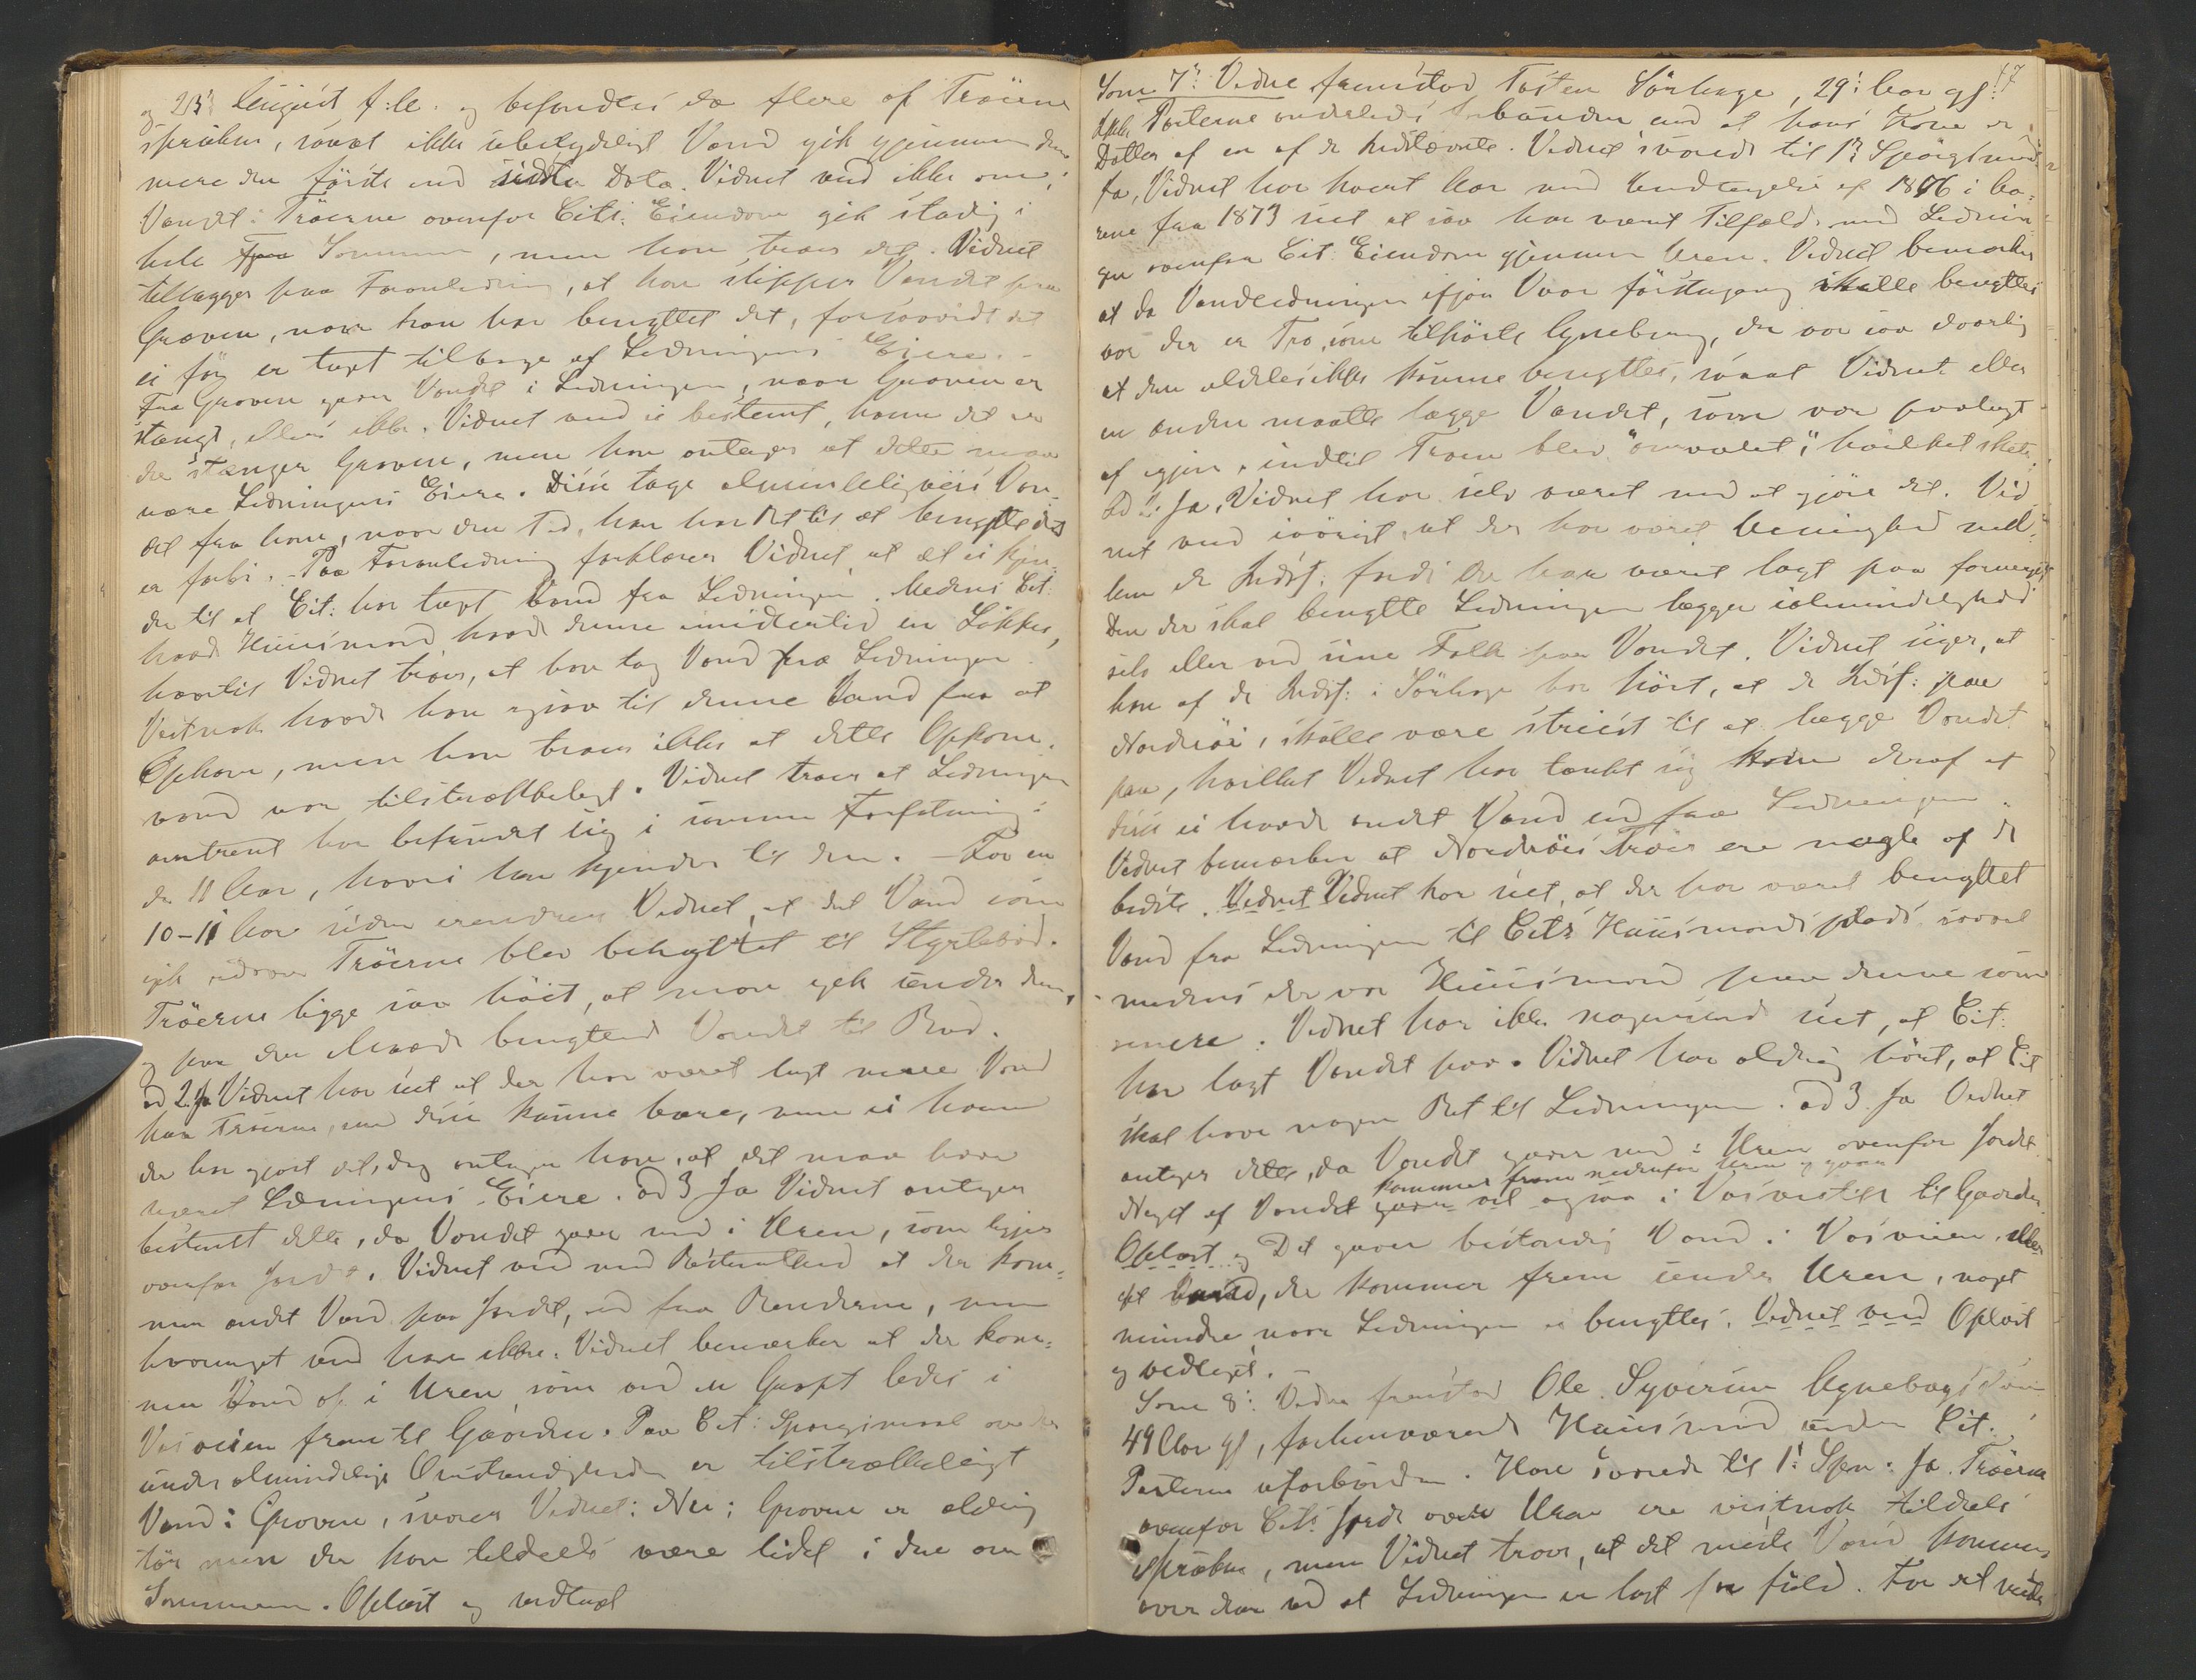 og 23 August f:A. og befandtes da flere af Tröerne
sprukne, saaat ikke ubetydeligt Vand gik gjennem dem
mere den første end sidste Dato. Vidnet ved ikke om
Vandet i Tröerne ovenfor Cits: Eiendom gik stadig i
hele Sommeren, men han troer det. Vidnet
tillægger paa Foranledning, at han slipper Vandet fra
Graven, naar han har benyttet det, forsaavidt det
ei før er taget tilbage af Ledningens Eiere.
Fra Graven gaar Vandet i Ledningen, naar Graven er
stængt, ellers ikke. Vidnet ved ei bestemt, hvem det er
der stænger Graven, men han antager at dette maa
være Ledningens Eiere. Disse tage almindeligviis Van-
det fra ham, naar den Tid, han har Ret til at benytte det
er forbi. - Paa Foranledning forklarer Vidnet, at det ei kjen-
der til at Cit: har taget Vand fra Ledningen. Medens Cit:
havde Huusmand havde denne imidlertid en Løkke,
hvortil Vidnet troer, at han tog Vand fra Ledningen.
Vistnok havde han ogsaa til denne Vand fra et
Opkom, men han troer ikke at dette Opkom-
vand var tilstrækkeligt. Vidnet troer at Ledningen
omtrent har befundet sig i samme Forfatning i
de 11 Aar, hvori han kjender til den. - For en
10-11 Aar siden erindrer Vidnet, at det Vand som
gik udover Tröerne blev benyttet til Styrtebad.
Tröerne ligge saa høit, at man gik under dem,
og paa den Maade benyttede Vandet til Bad.
ad 2. Ja Vidnet har seet at der har været lagt mere Vand
paa Tröerne, end disse kunne bære, men ei hvem
der har gjort det, dog antager han, at det maa have
været Ledningens Eiere. ad 3 Ja Vidnet antager
bestemt dette, da Vandet gaar ned i Uren, som ligger
ovenfor Jordet. Vidnet ved med Bestemthed at der kom-
mer andet Vand paa Jordet, end fra Renderne, men
hvormeget ved han ikke. Vidnet bemærker at der kom-
mer Vand op i Uren, som ved en Grøft ledes i
Vasveien frem til Gaarden. Paa Cit: Spørgsmaal om der
under almindelige Omstændigheder er tilstrækkeligt
Vand i Graven, svarer Vidnet: Nei; Graven er aldrig
tør men der kan tildeels være lidet i den om
Sommeren. Oplæst og vedtaget
47
Som 7de Vidne fremstod Tosten Sörhage, 29 Aar gl.
Parterne anderledes end at hans Kone er
Datter af en af de Indstævnte. Vidnet svarede til 1ste Spørgsmaal
Ja, Vidnet har hvert Aar med Undtagelse af 1876 i Aa-
rene fra 1873 seet at saa har været Tilfælde med Lednin-
gen ovenfra Cit. Eiendom gjennem Uren. Vidnet bemærker
at da Vandledningen ifjor Vaar førstegang skulle benyttes
var der en Tro, som tilhørte Agneberg, der var saa daarlig
at den aldeles ikke kunne benyttes, saaat Vidnet eller
en anden maatte lægge Vandet, som var paalagt
af igjen, indtil Troen blev "omvalet", hvilket skete.
Ad 2: Ja, Vidnet har selv været med at gjøre det. Vid-
net ved iøvrigt, at der har været Uenighed mel-
lem de Indst: fordi der har været lagt paa formeget
Den der skal benytte Ledningen lægger i Almindelighed
selv eller ved sine Folk paa Vandet. Vidnet siger, at
han af de Indst: i Sörhage har hørt, at de Indst: paa
Nordrøi, skulle være striest til at lægge Vandet
paa, hvilket Vidnet har tænkt sig kom deraf at
disse ei havde andet Vand end fra Ledningen.
Vidnet bemærker at Nordrøis Tröer ere nogle af de
bedste. Vidnet Vidnet har seet, at der har været benyttet
Vand fra Ledningen til Cits Huusmandsplads saavel
medens der var Huusmand paa denne som
senere. Vidnet har ikke nogensinde seet, at Cit:
har lagt Vandet paa. Vidnet har aldrig hørt, at Cit
skal have nogen Ret til Ledningen. ad 3. Ja Vidnet
antager dette, da Vandet gaar ned i Uren ovenfor Jordet
kommer frem nedenfor Uren og gaar
Noget af Vandet gaar vel ogsaa i Vasveien til Gaarden
Oplæst og Det gaaer bestandig Vand i Vasveien,
Vand, der kommer frem under Uren, noget
mindre naar Ledningen ei benyttes. Vidnet ved Oplæst
og vedtaget. -
Som 8: Vidne fremstod Ole Syversen
49 Aar gl, forhenværende Huusmand under Cit.
Parterne uforbunden. Han svarede til 1: Spm: Ja. Tröerne
ovenfor Cits: Jorde over Uren ere vistnok tildeels
sprukne, men Vidnet troer, at det meste Vand kommer
over dem ved at Ledningen er lagt for fuld. For et